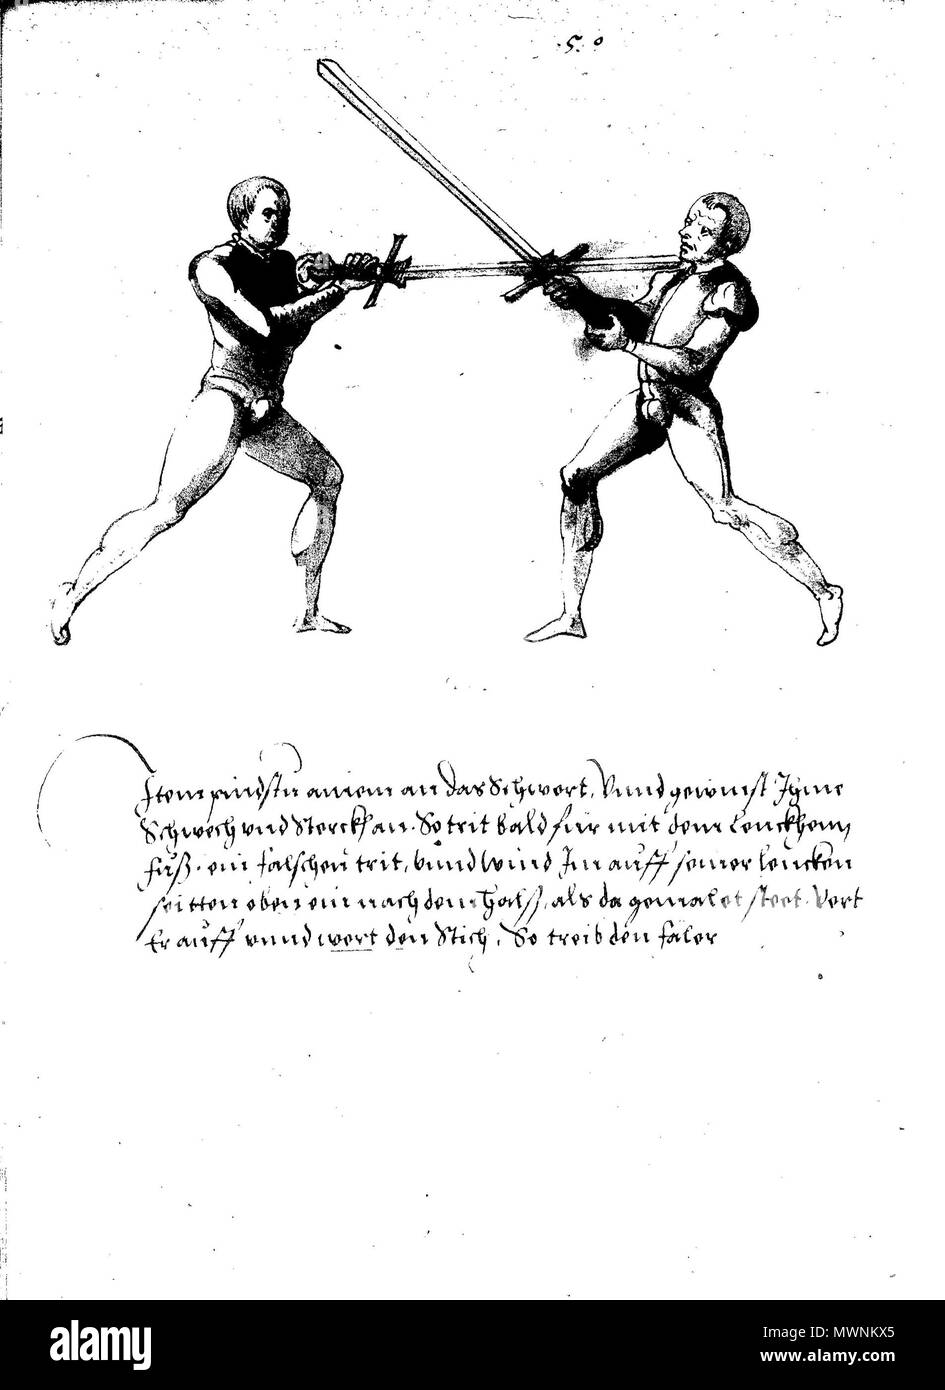 5.0
Item pindstu ainem an das Schwert, Vnnd gewinst Ihme
Schwech vnd Sterckh an. So trit bald fur mit dem lenckhenn
fuß. ein falschen trit, vnnd wind Im auff seiner lencken
seitten oben ein nach dem halß, als da gemalet steet. Vert
Er auff vnnd wert den Stich, So treib den faler
alamy
Image ID: MWNKX5
www.alamy.com